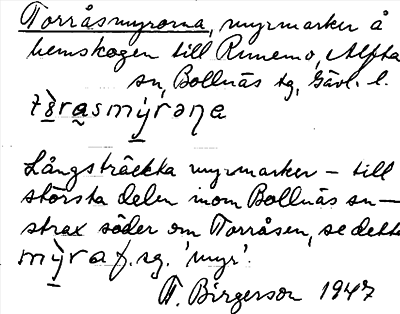 Torråsmyrorna, myrmarker å
hemskogen till Runemo, Alfta
sn, Bollnäs tg, Gävl. l.
Långsträckta myrmarker – till
största delen inom Bollnäs sn –
strax söder om Torråsen, se detta
myra f. sg. 'myr'.
T. Birgerson 1947